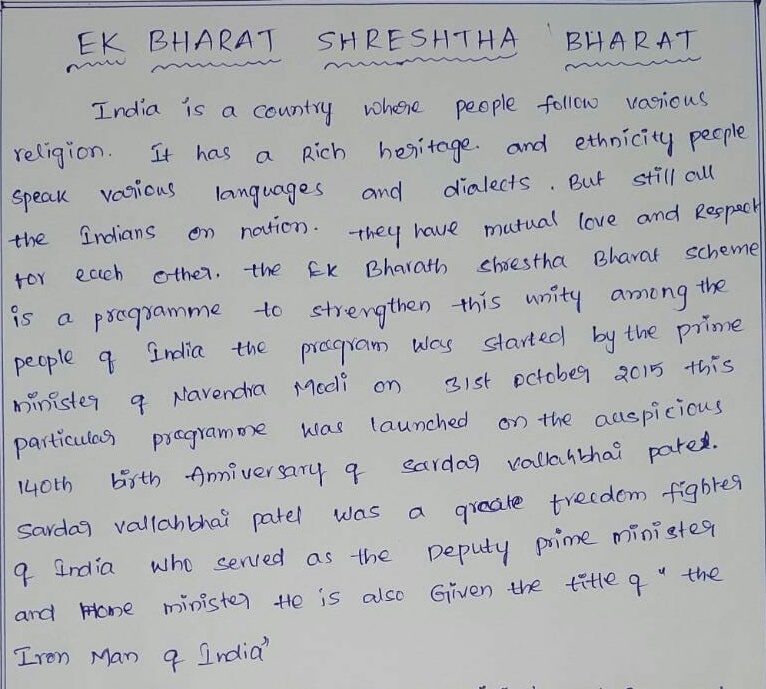 EK BHARAT SHRESHTHA BHARAT
India is a country where people follow various
religion. It has a Rich heritage. and ethnicity people
speak various languages and dialects. But still all
the Indians on nation. they have mutual love and Respect
for each other. the Ek Bharath Shrestha Bharat scheme
is a programme to strengthen this unity among the
people of India the program was started by the prime
minister of Narendra Modi on 31st october 2015 this
particular programme was launched on the auspicious
140th birth Anniversary of sardar vallahbhai patel.
sardar vallahbhai patel was a greate freedom fighter
of India who served as the Deputy prime minister
and Home minister He is also Given the title of " the
Iron Man of India"